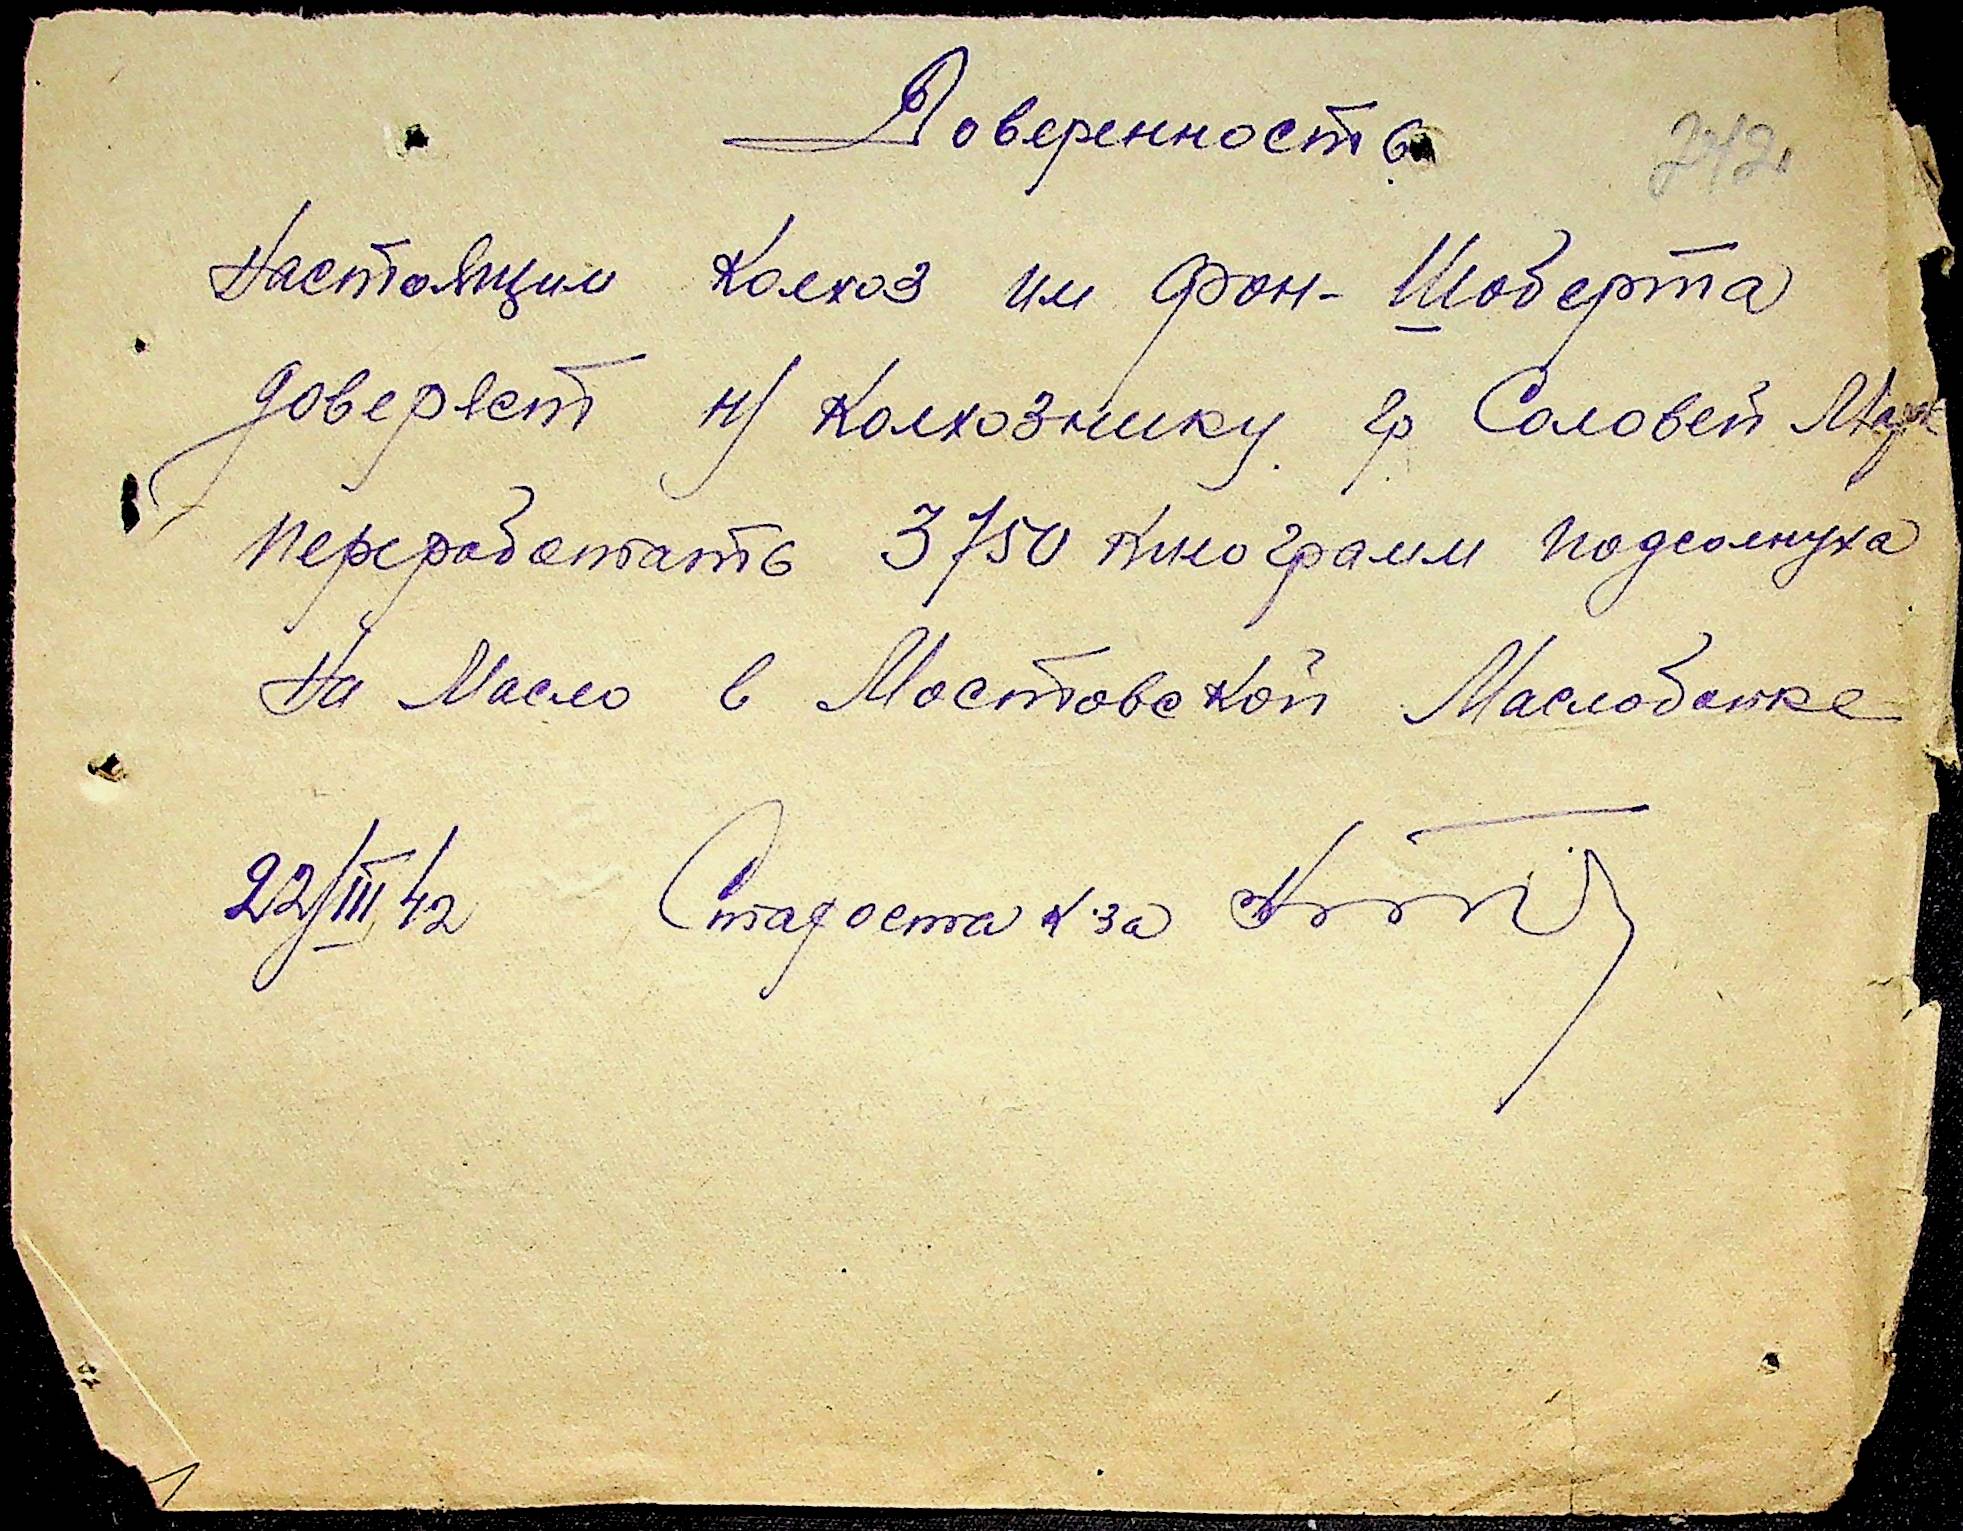 Доверенность
242
Настоящим Колхоз им фон-Шоберта
доверяет н/ Колхознику гр Соловей Марк
переработать 3750 килограмм подсолнуха
На Масло в Мостовской Маслобойке
22/III 42 Староста к-за